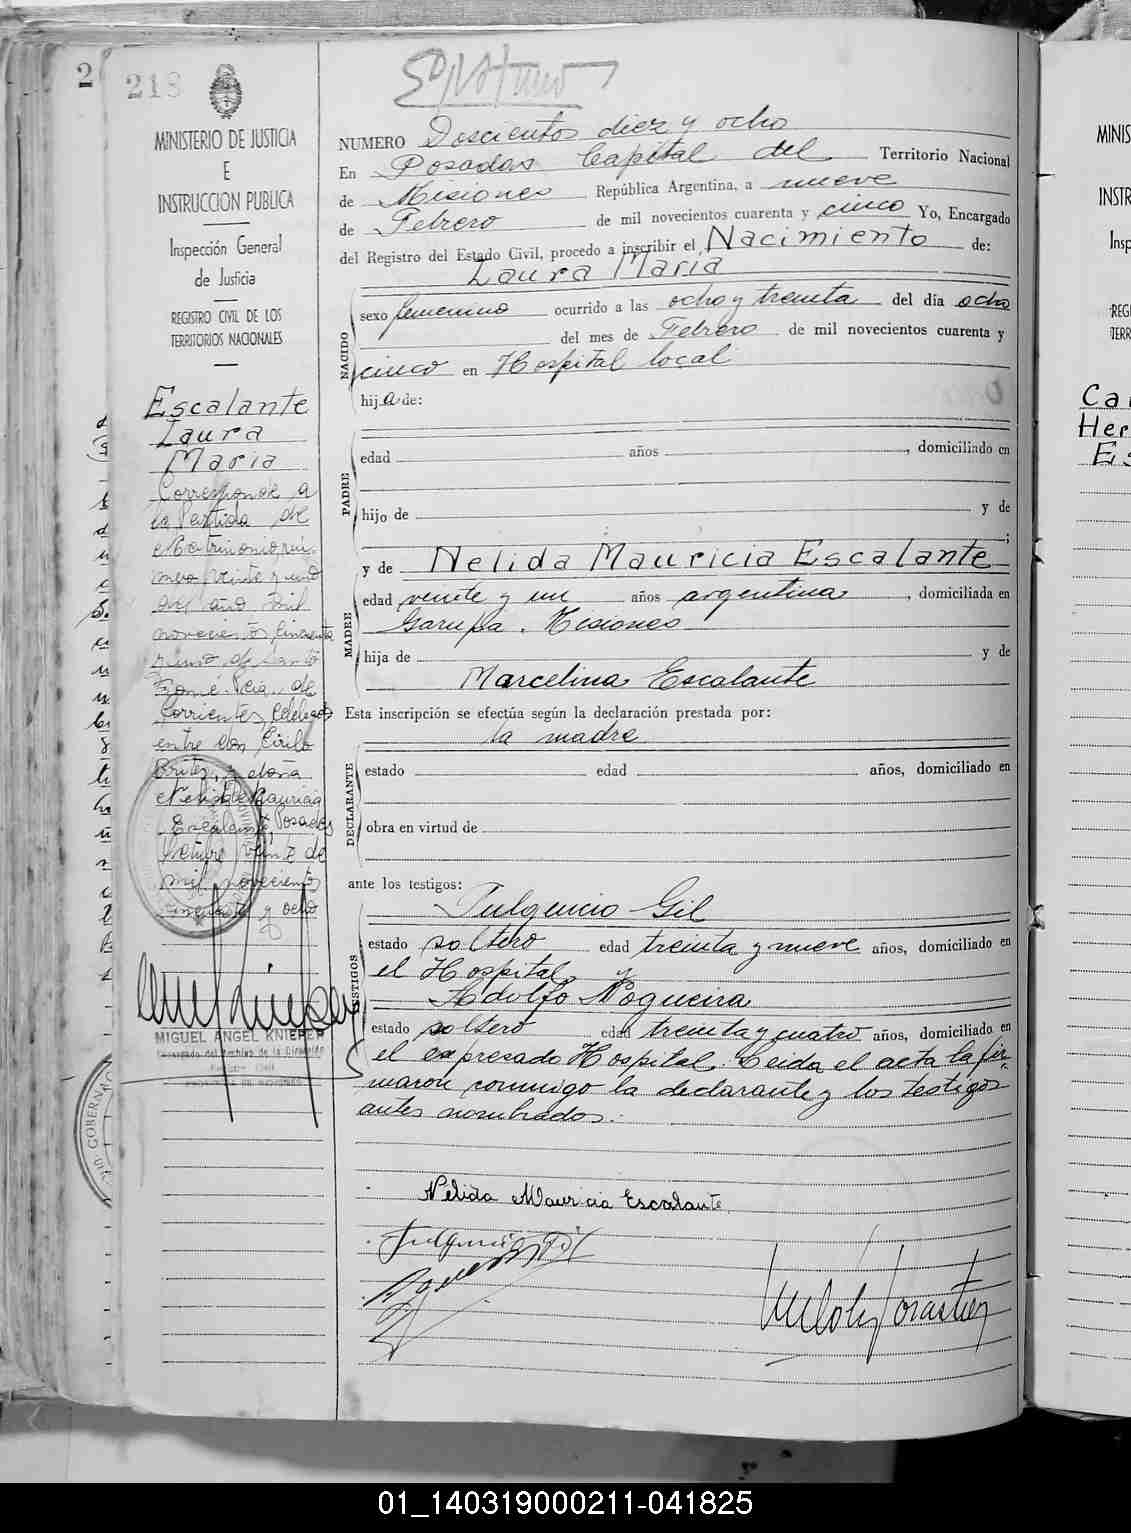 218
MINISTERIO DE JUSTICIA
E
INSTRUCCION PUBLICA
Inspección General
de Justicia
REGISTRO CIVIL DE LOS
TERRITORIOS NACIONALES
Escalante
Laura
Maria
Corresponde a
la Partida de
Matrimonio nú-
mero veinte y uno
del año mil
novecientos cincuenta
y uno de Santo
Tomé. Pcia. de
Corrientes, celebrado
entre don Cirilo
Britez, y doña
Nelida Mauricia
Escalante, Posadas
veinte de
mil novecientos
cincuenta y ocho
MIGUEL ANGEL KNIEPER
Encargado del Archivo de la Dirección
NUMERO Doscientos diez y ocho
En Posadas Capital del Territorio Nacional
de Misiones República Argentina, a nueve
de Febrero de mil novecientos cuarenta y cinco Yo, Encargado
del Registro del Estado Civil, procedo a inscribir el Nacimiento de:
Laura Maria
NACIDO
sexo femenino ocurrido a las ocho y treinta del día ocho
del mes de Febrero de mil novecientos cuarenta y
cinco en Hospital local
hija de:
PADRE
edad años , domiciliado en
hijo de y de
;
y de Nelida Mauricia Escalante
MADRE
edad veinte y un años argentina , domiciliada en
Garupa. Misiones
hija de y de
Marcelina Escalante
Esta inscripción se efectúa según la declaración prestada por:
la madre
DECLARANTE
estado edad años, domiciliado en
obra en virtud de
ante los testigos:
TESTIGOS
Fulgencio Gil
estado soltero edad treinta y nueve años, domiciliado en
el Hospital y
Adolfo Nogueira
estado soltero edad treinta y cuatro años, domiciliado en
el expresado Hospital. Leida el acta la fir-
maron conmigo la declarante y los testigos
antes nombrados.
Nélida Mauricia Escalante
Fulgencio Gil
01_140319000211-041825